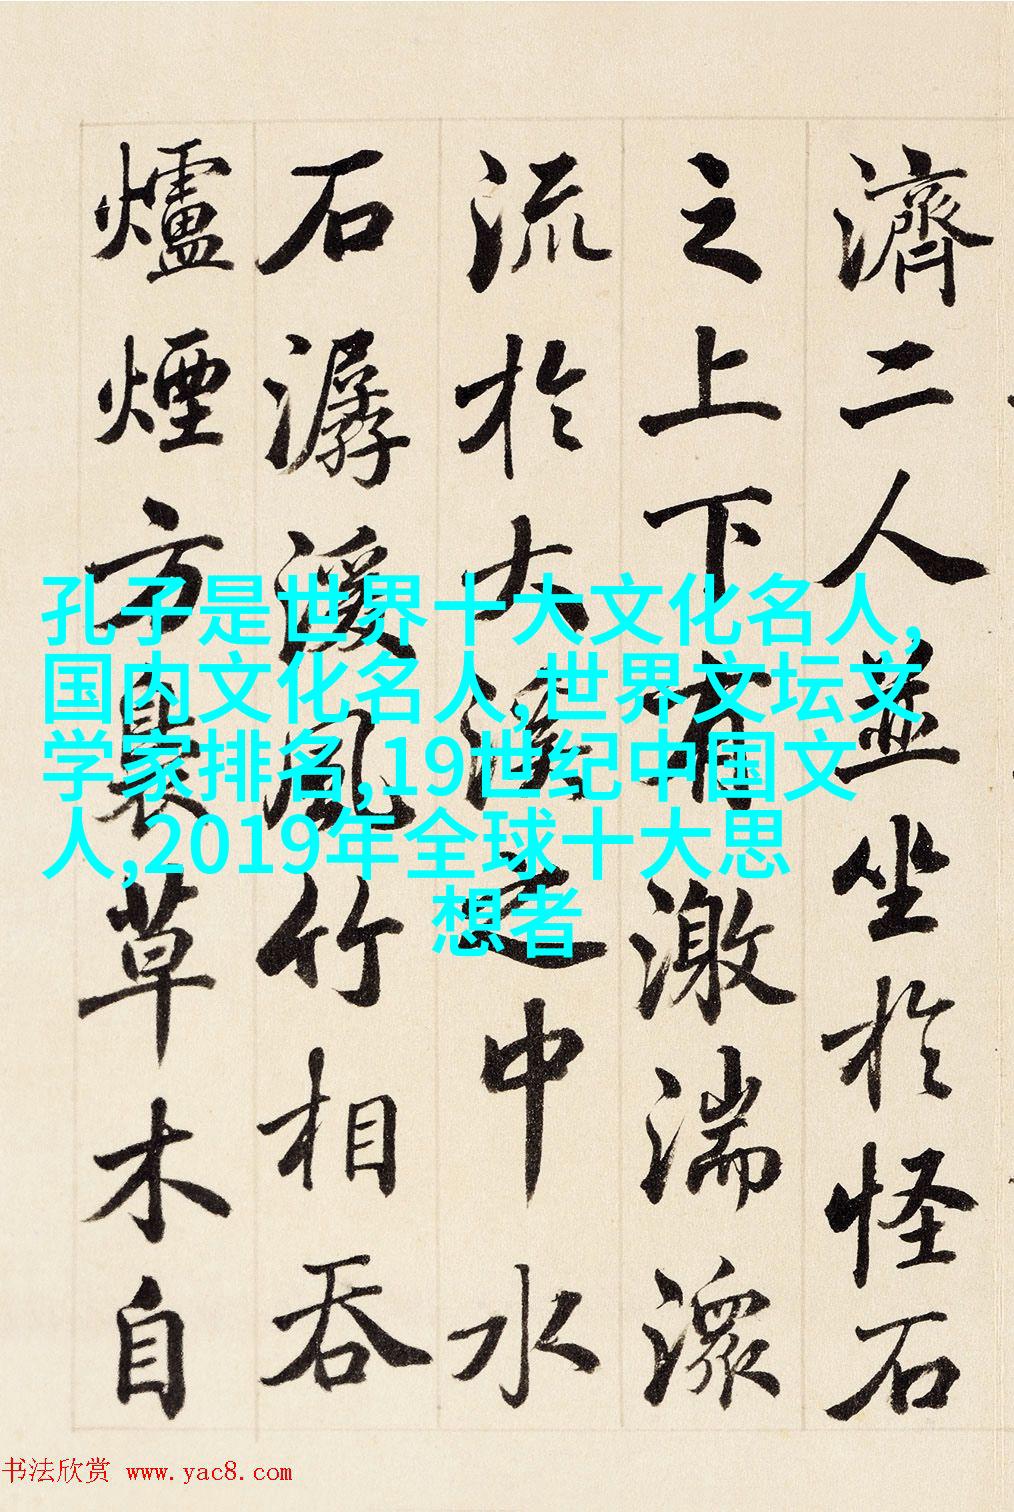 濟二人並坐於怪石
之上下有激湍潨
流於大溪之中水
石潺湲風竹相吞
爐煙方裊草木自
孔子是世界十大文化名人,
国内文化名人,世界文坛文
学家排名,19世纪中国文
人,2019年全球十大思
想者
书法欣赏 www.yac8.com